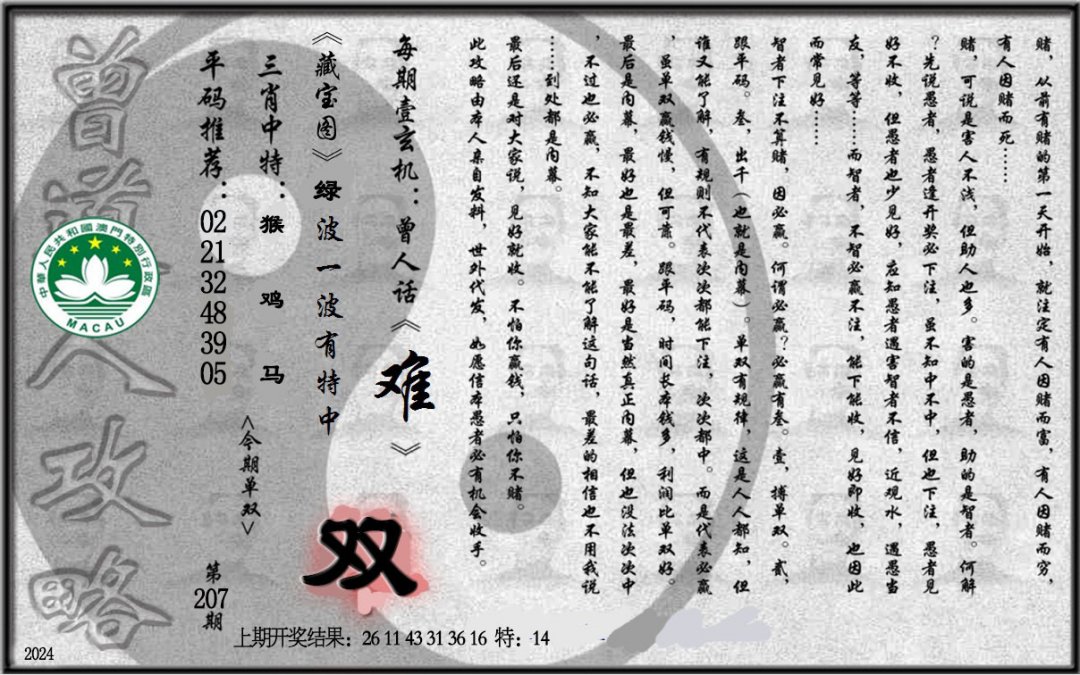 赌，从前有赌的第一天开始，就注定有人因赌而富，有人因赌而穷，
有人因赌而死……
赌，可说是害人不浅，但助人也多。害的是愚者，助的是智者。何解
？先说愚者，愚者逢开奖必下注，虽不知中不中，但也下注，愚者见
好不收，但愚者也少见好，应知愚者遇害智者不信，近观水，遇愚当
友，等等……而智者，不智必赢不注，能下能收，见好即收，也因此
而常见好……
智者下注不算赌，因必赢。何谓必赢？必赢有叁。壹，搏单双。贰，
跟平码。叁，出千（也就是内幕）。单双有规律，这是人人都知，但
谁又能了解，有规则不代表次次都能下注，次次都中。而是代表必赢
，虽单双赢钱慢，但可靠。跟平码，时间长本钱多，利润比单双好。
最后是内幕，最好也是最差，最好是当然真正内幕，但也没法次次中
，不过也必赢，不知大家能不能了解这句话，最差的相信也不用我说
……到处都是内幕。
最后还是对大家说，见好就收。不怕你赢钱，只怕你不赌。
此攻略由本人亲自发料，世外代发，如愿信本愚者必有机会收手。
每期壹玄机：曾人话《难》
《藏宝图》绿波一波有特中
双
三肖中特：猴 鸡 马
<今期单双>
平码推荐：02 21 32 48 39 05
第207期
曾道人攻略
中華人民共和國澳門特別行政區
MACAU
上期开奖结果：26 11 43 31 36 16 特：14
2024